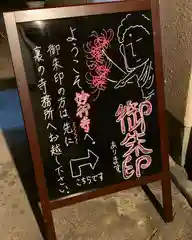 ようこそ妙行寺へ。
御朱印の方は、先に
裏の寺務所へお越し下さい。
こちらです
御朱印
あります